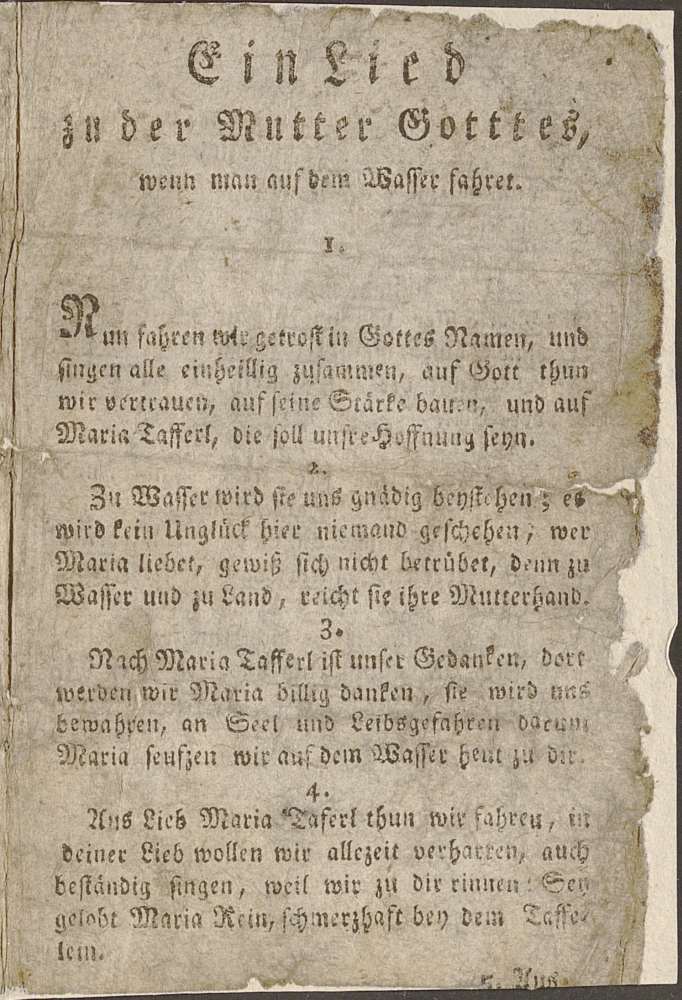 Ein Lied
zu der Mutter Gotttes,
wenn man auf dem Wasser fahret.
1.
Nun fahren wir getrost in Gottes Namen, und
singen alle einheillig zusammen, auf Gott thun
wir vertrauen, auf seine Stärke bauen, und auf
Maria Tafferl, die soll unsre Hoffnung seyn.
2.
Zu Wasser wird sie uns gnädig beystehen; es
wird kein Unglück hier niemand geschehen, wer
Maria liebet, gewiß sich nicht betrübet, denn zu
Wasser und zu Land, reicht sie ihre Mutterhand.
3.
Nach Maria Tafferl ist unser Gedanken, dort
werden wir Maria billig danken, sie wird uns
bewahren, an Seel und Leibsgefahren darum
Maria seufzen wir auf dem Wasser heut zu dir.
4.
Aus Lieb Maria Taferl thun wir fahren, in
deiner Lieb wollen wir allezeit verharren, auch
beständig singen, weil wir zu dir rinnen: Sey
gelobt Maria Rein, schmerzhaft bey dem Taffe-
lem.
5. Aus